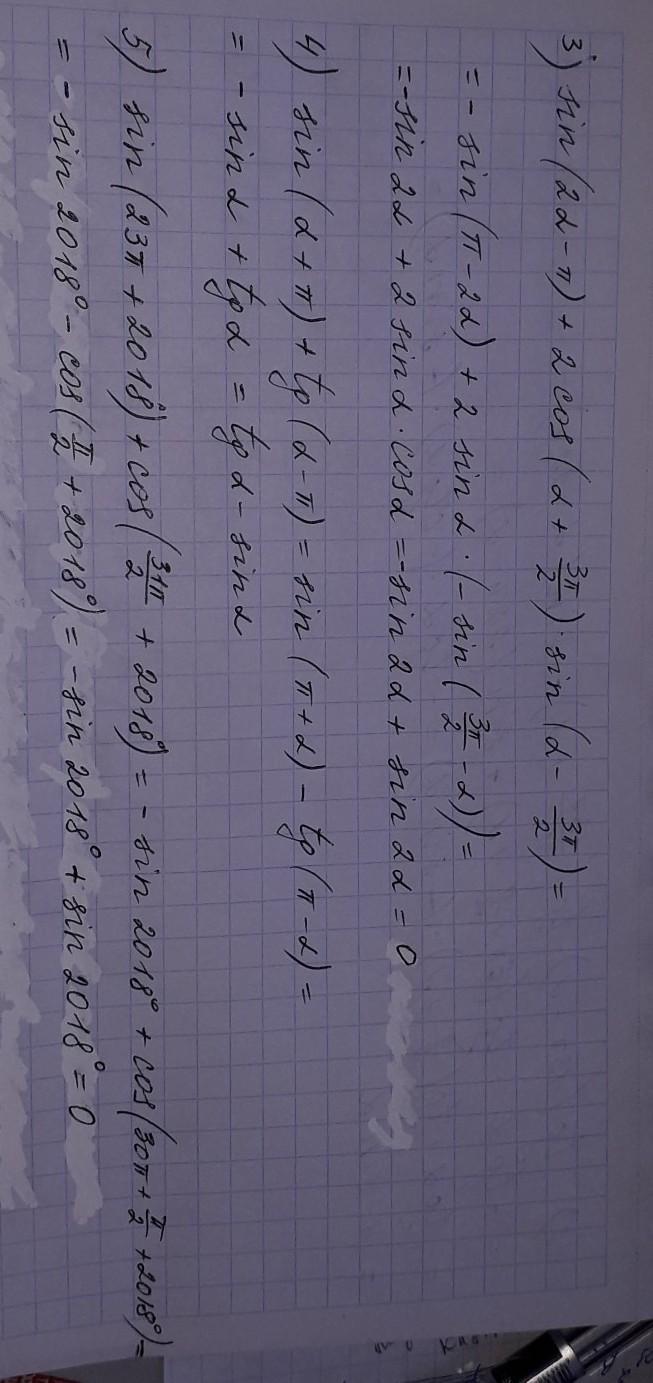 3) sin(2α-π)+2cos(α+3π/2)·sin(α-3π/2)=
=-sin(π-2α)+2sinα·(-sin(3π/2-α))=
=-sin2α+2sinα·cosα=-sin2α+sin2α=0
4) sin(α+π)+tg(α-π)=sin(π+α)-tg(π-α)=
=-sinα+tgα=tgα-sinα
5) sin(23π+2018°)+cos(31π/2+2018°)=-sin2018°+cos(30π+π/2+2018°)=
=-sin2018°-cos(π/2+2018°)=-sin2018°+sin2018°=0